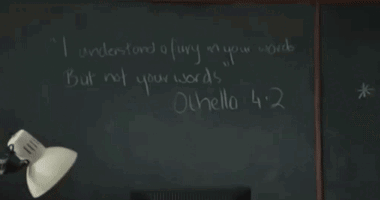 "I understand a fury in your words
But not your words"
Othello 4.2
*